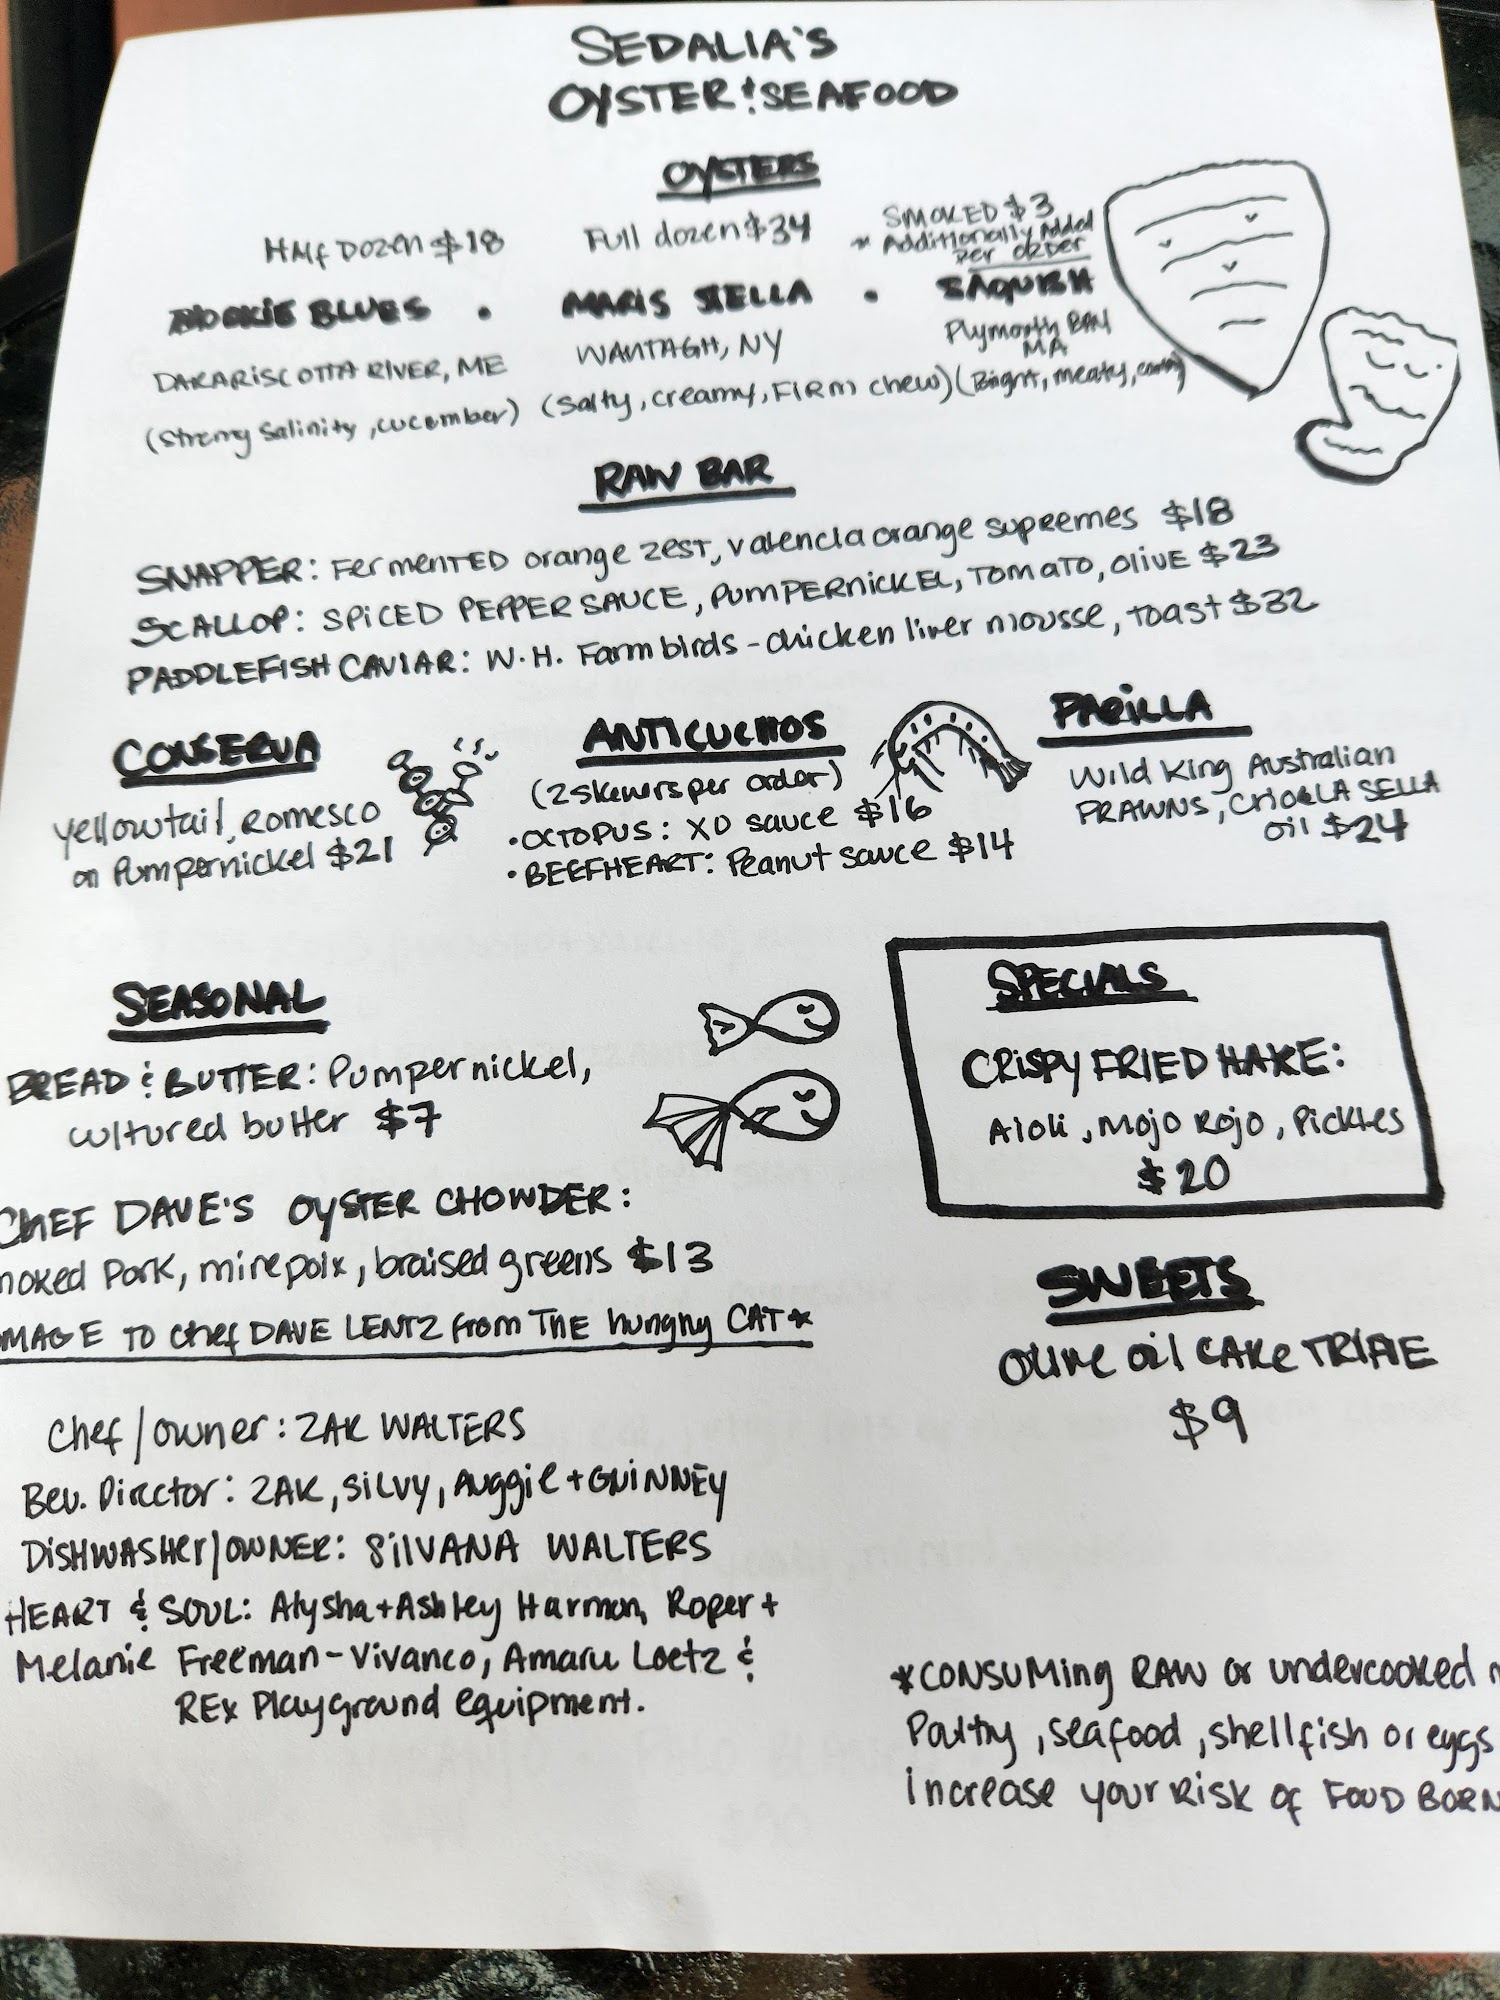 SEDALIA'S
OYSTER & SEAFOOD
OYSTERS
Half Dozen $18 Full dozen $34 SMOKED $3
* Additionally Added
per order
ROOKIE BLUES • MARIS STELLA • SAQUISH
DAKARISCOTTA RIVER, ME WANTAGH, NY Plymouth BAY
MA
(Strong Salinity, cucumber) (Salty, creamy, FIRM chew) (Bright, meaty,
RAW BAR
SNAPPER: FermenTED orange zest, valencia orange supremes $18
SCALLOP: SPICED PEPPER SAUCE, PUMPERNICKEL, TOMATO, OLIVE $23
PADDLEFISH CAVIAR: W.H. Farm birds - chicken liver mousse, toast $32
CONSERVA
yellowtail, romesco
on Pumpernickel $21
ANTICUCHOS
(2 skewers per order)
• OCTOPUS: XO sauce $16
• BEEFHEART: Peanut sauce $14
PARILLA
Wild King Australian
PRAWNS, CRIOLLA SELLA
oil $24
SEASONAL
BREAD & BUTTER: Pumpernickel,
cultured butter $7
CHEF DAVE'S OYSTER CHOWDER:
moked Pork, mirepoix, braised greens $13
MAGE TO Chef DAVE LENTZ from THE hungry CAT*
SPECIALS
CRISPY FRIED HAKE:
Aioli, Mojo Rojo, Pickles
$20
SWEETS
Olive oil CAKE TRIFLE
$9
Chef/owner: ZAK WALTERS
Bev. Director: ZAK, SILVY, Auggie + GUINNEY
DISHWASHER/OWNER: SILVANA WALTERS
HEART & SOUL: Alysha + Ashley Harmon, Roper +
Melanie Freeman-Vivanco, Amaru Loetz &
REX Playground equipment.
*CONSUMING RAW or undercooked m
Poultry, seafood, shellfish or eggs
increase your Risk of FOOD BORN